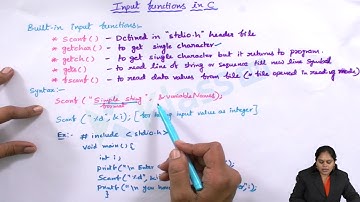 Input functions in C
Built-in Input functions:-
* Scanf() - Defined in "stdio.h" header file
* getchar() - to get single character
* getch() - to get single character but it returns to program.
* gets() - to read line of string or sequence till new line symbol
* fscanf() - to read data values from file (* file opened in read mode)
Syntax:-
Scanf ("Simple string", &variableNames);
Scanf ("%d", &i); [for int value as integer]
Ex:- # include <stdio.h>
void main() {
int i;
printf("\n Enter
Scanf("%d", &i
printf("\n you have
i);
}